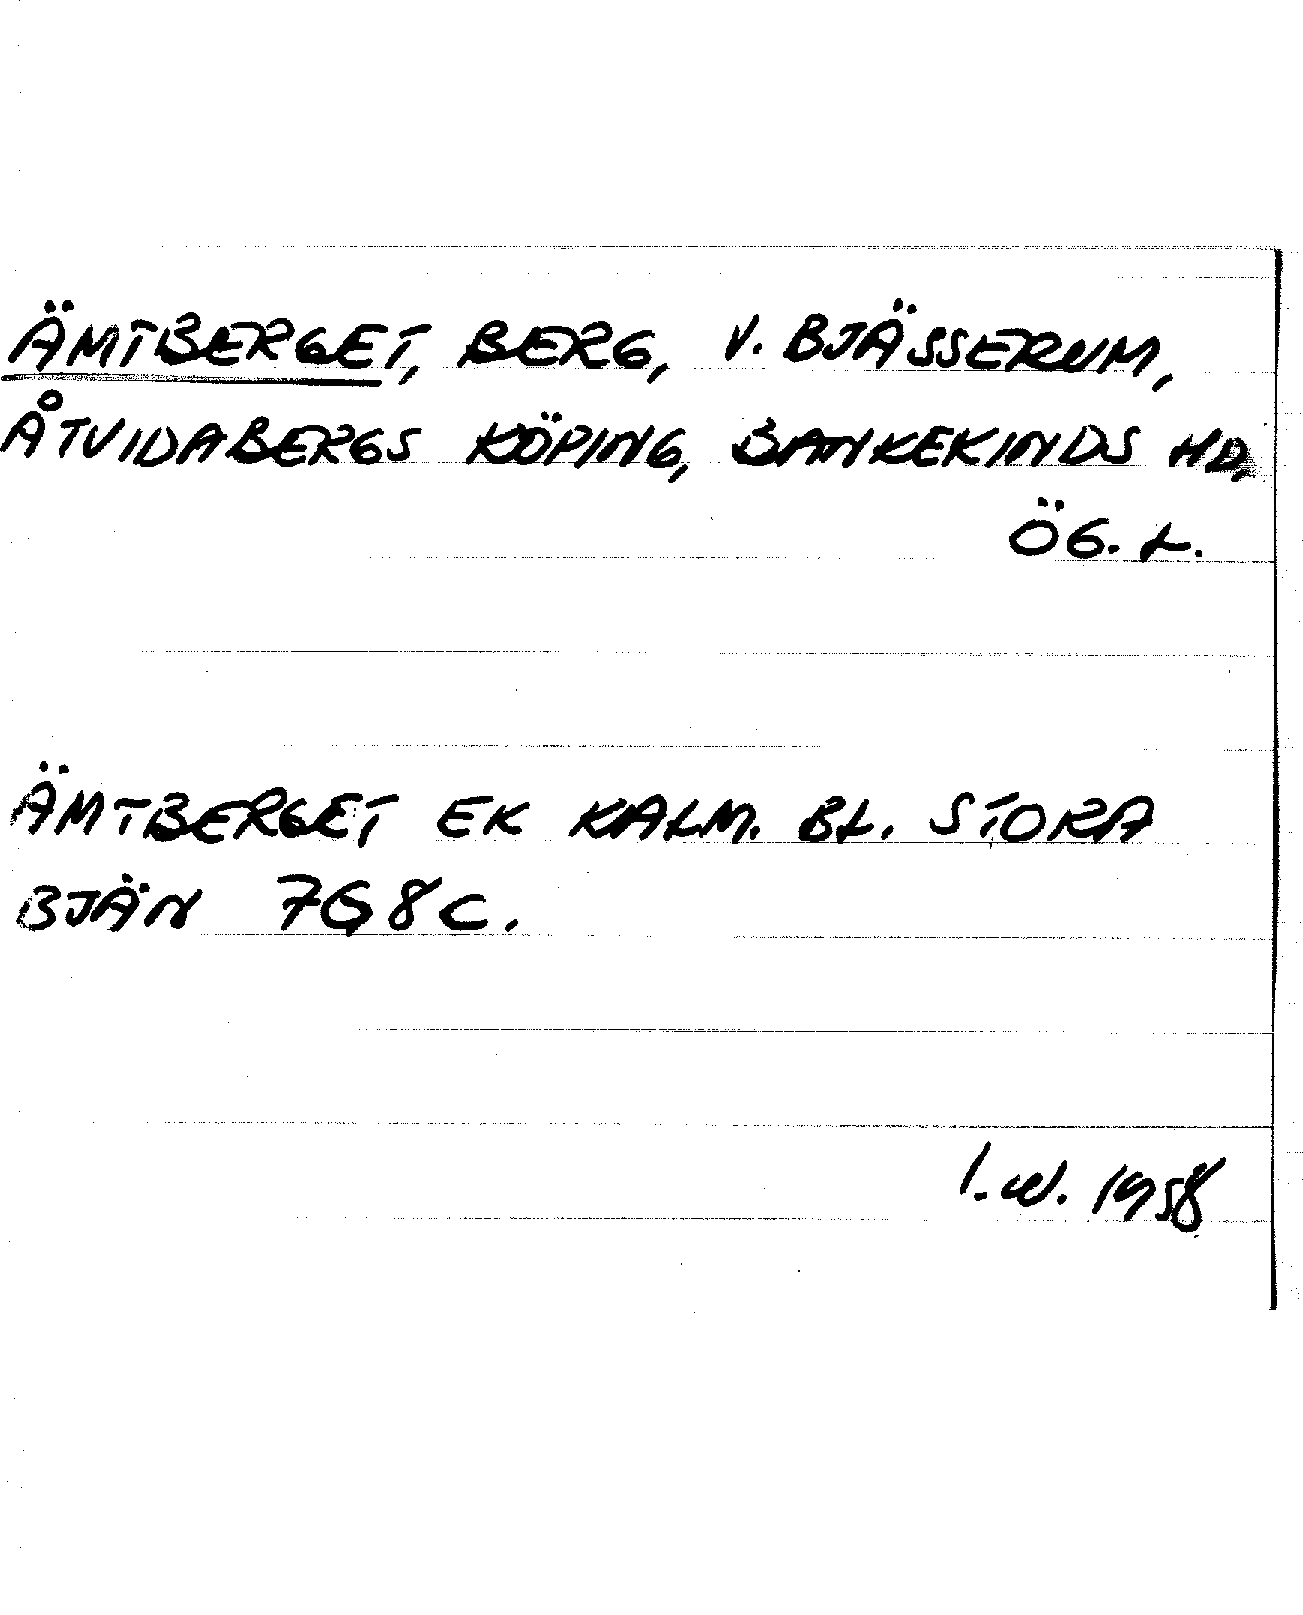 ÄMTBERGET, BERG, V. BJÄSSERUM,
ÅTVIDABERGS KÖPING, BANKEKINDS HD,
ÖG. L.
ÄMTBERGET EK KALM. BL. STORA
BJÄN 7G8C.
I.W. 1958